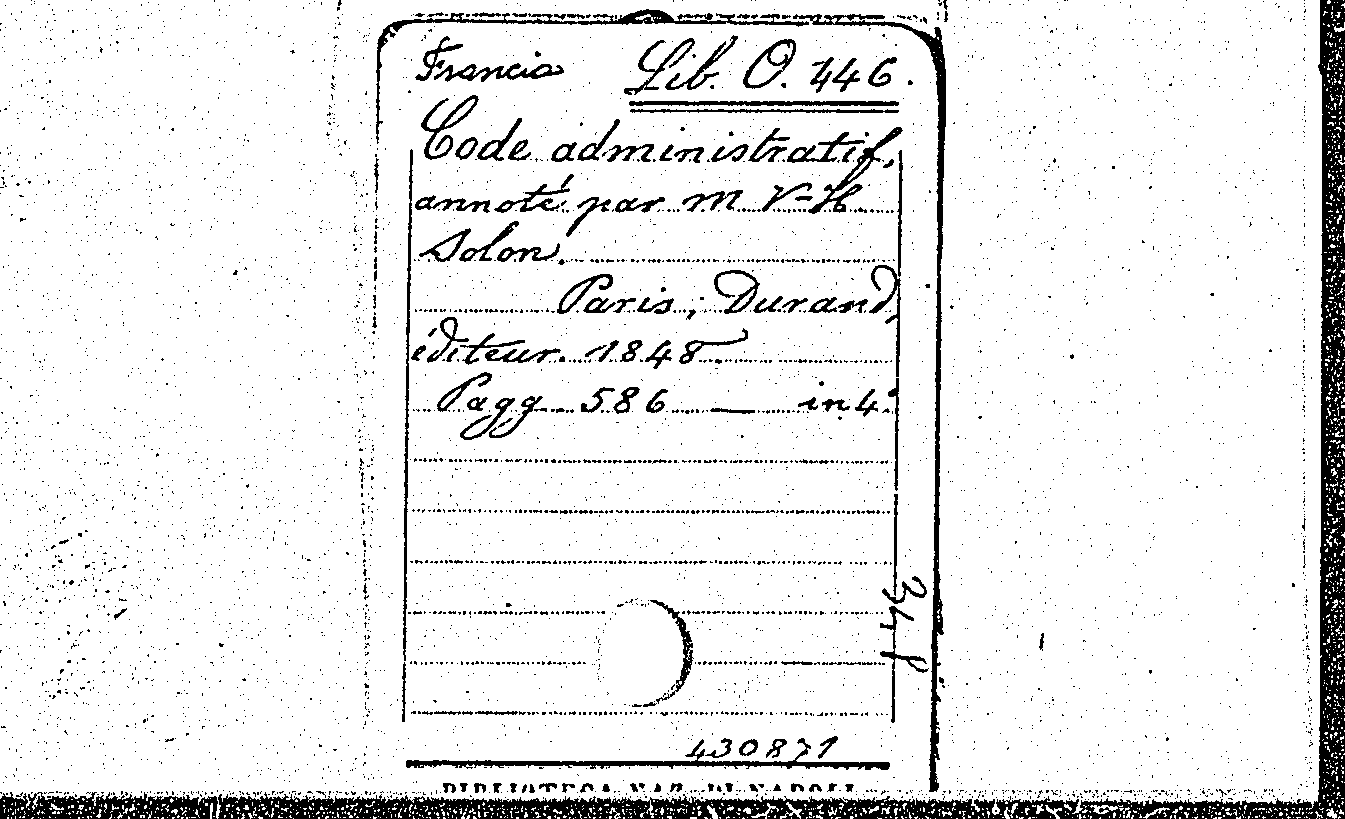 Francia Lib. O. 446.
Code administratif,
annoté par m V-H.
Solon.
Paris, Durand,
éditeur. 1848.
Pagg. 586 — in 4.º
430871
BIBLIOTECA NAZ. DI NAPOLI